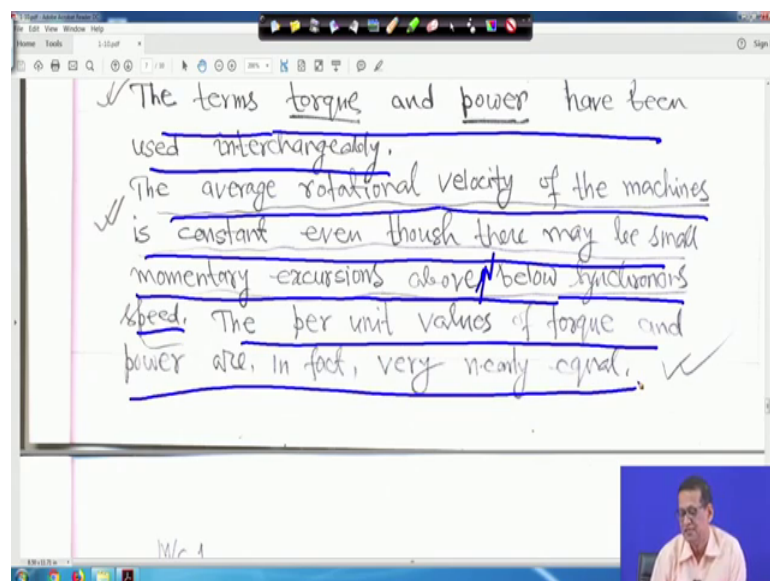 1-10.pdf - Adobe Acrobat Reader DC
File Edit View Window Help
Home Tools 1-10.pdf × Sign
7 / 10 200%
The terms torque and power have been
used interchangeably.
The average rotational velocity of the machines
is constant even though there may be small
momentary excursions above / below synchronous
speed. The per unit values of torque and
power are, in fact, very nearly equal.
8.50 x 11.71 in